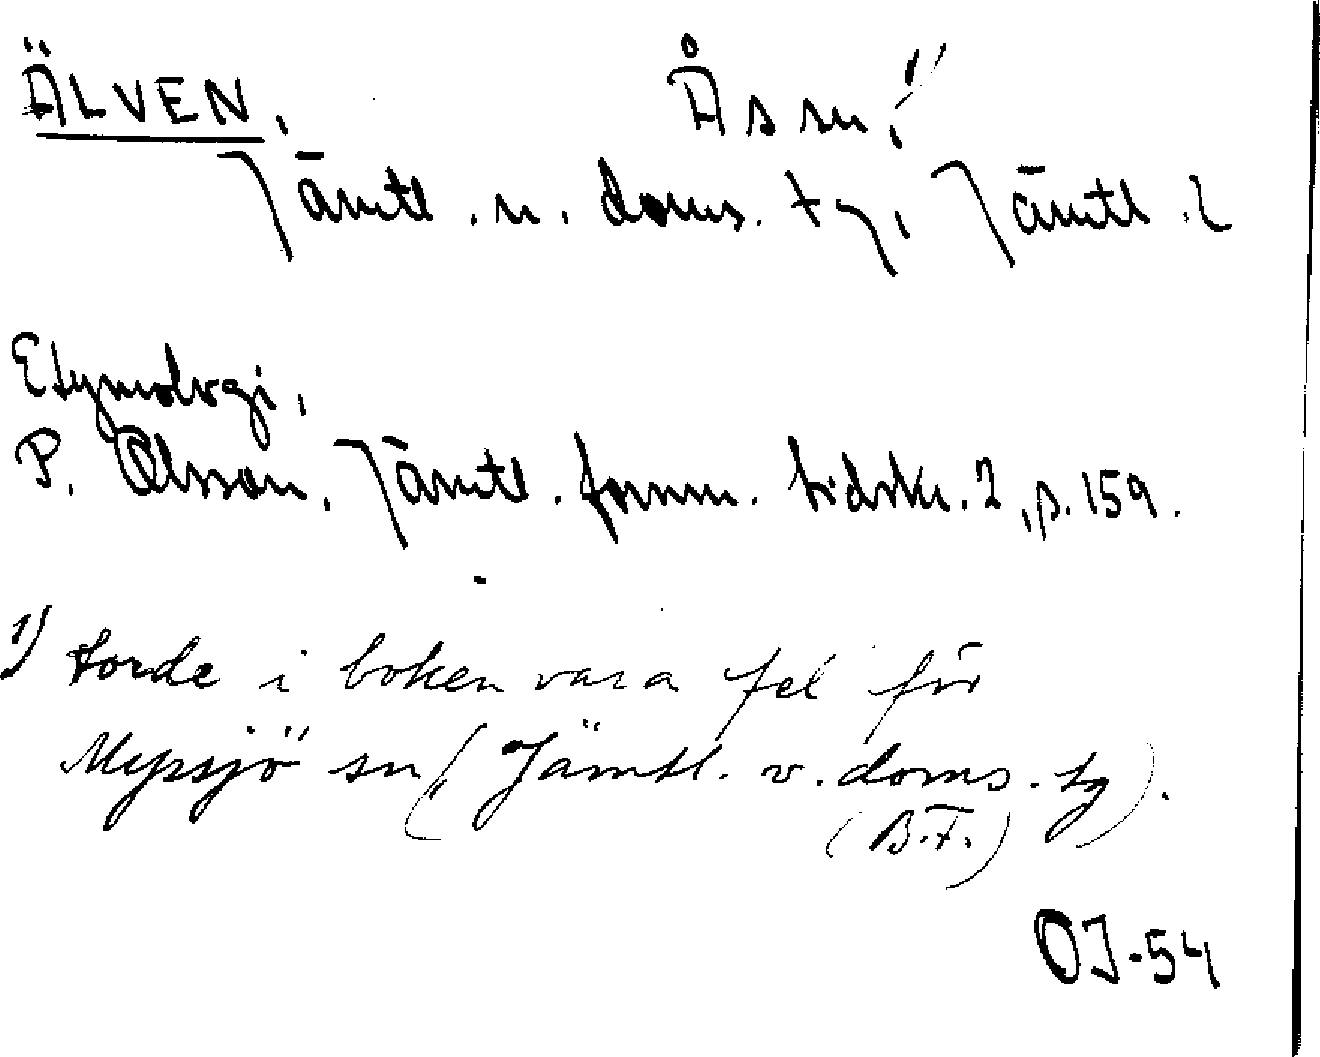 ÄLVEN. Ås sn, 1)
Jämtl. n. doms. tg, Jämtl. l
Etymologi,
P. Olsson, Jämtl. fornm. tidskr. 2, s. 159.
1) torde i boken vara fel för
Myssjö sn (Jämtl. v. doms. tg).
(B.F.)
OJ-54